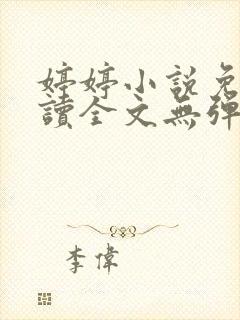 婷婷小説免
讀全文無彈
李偉